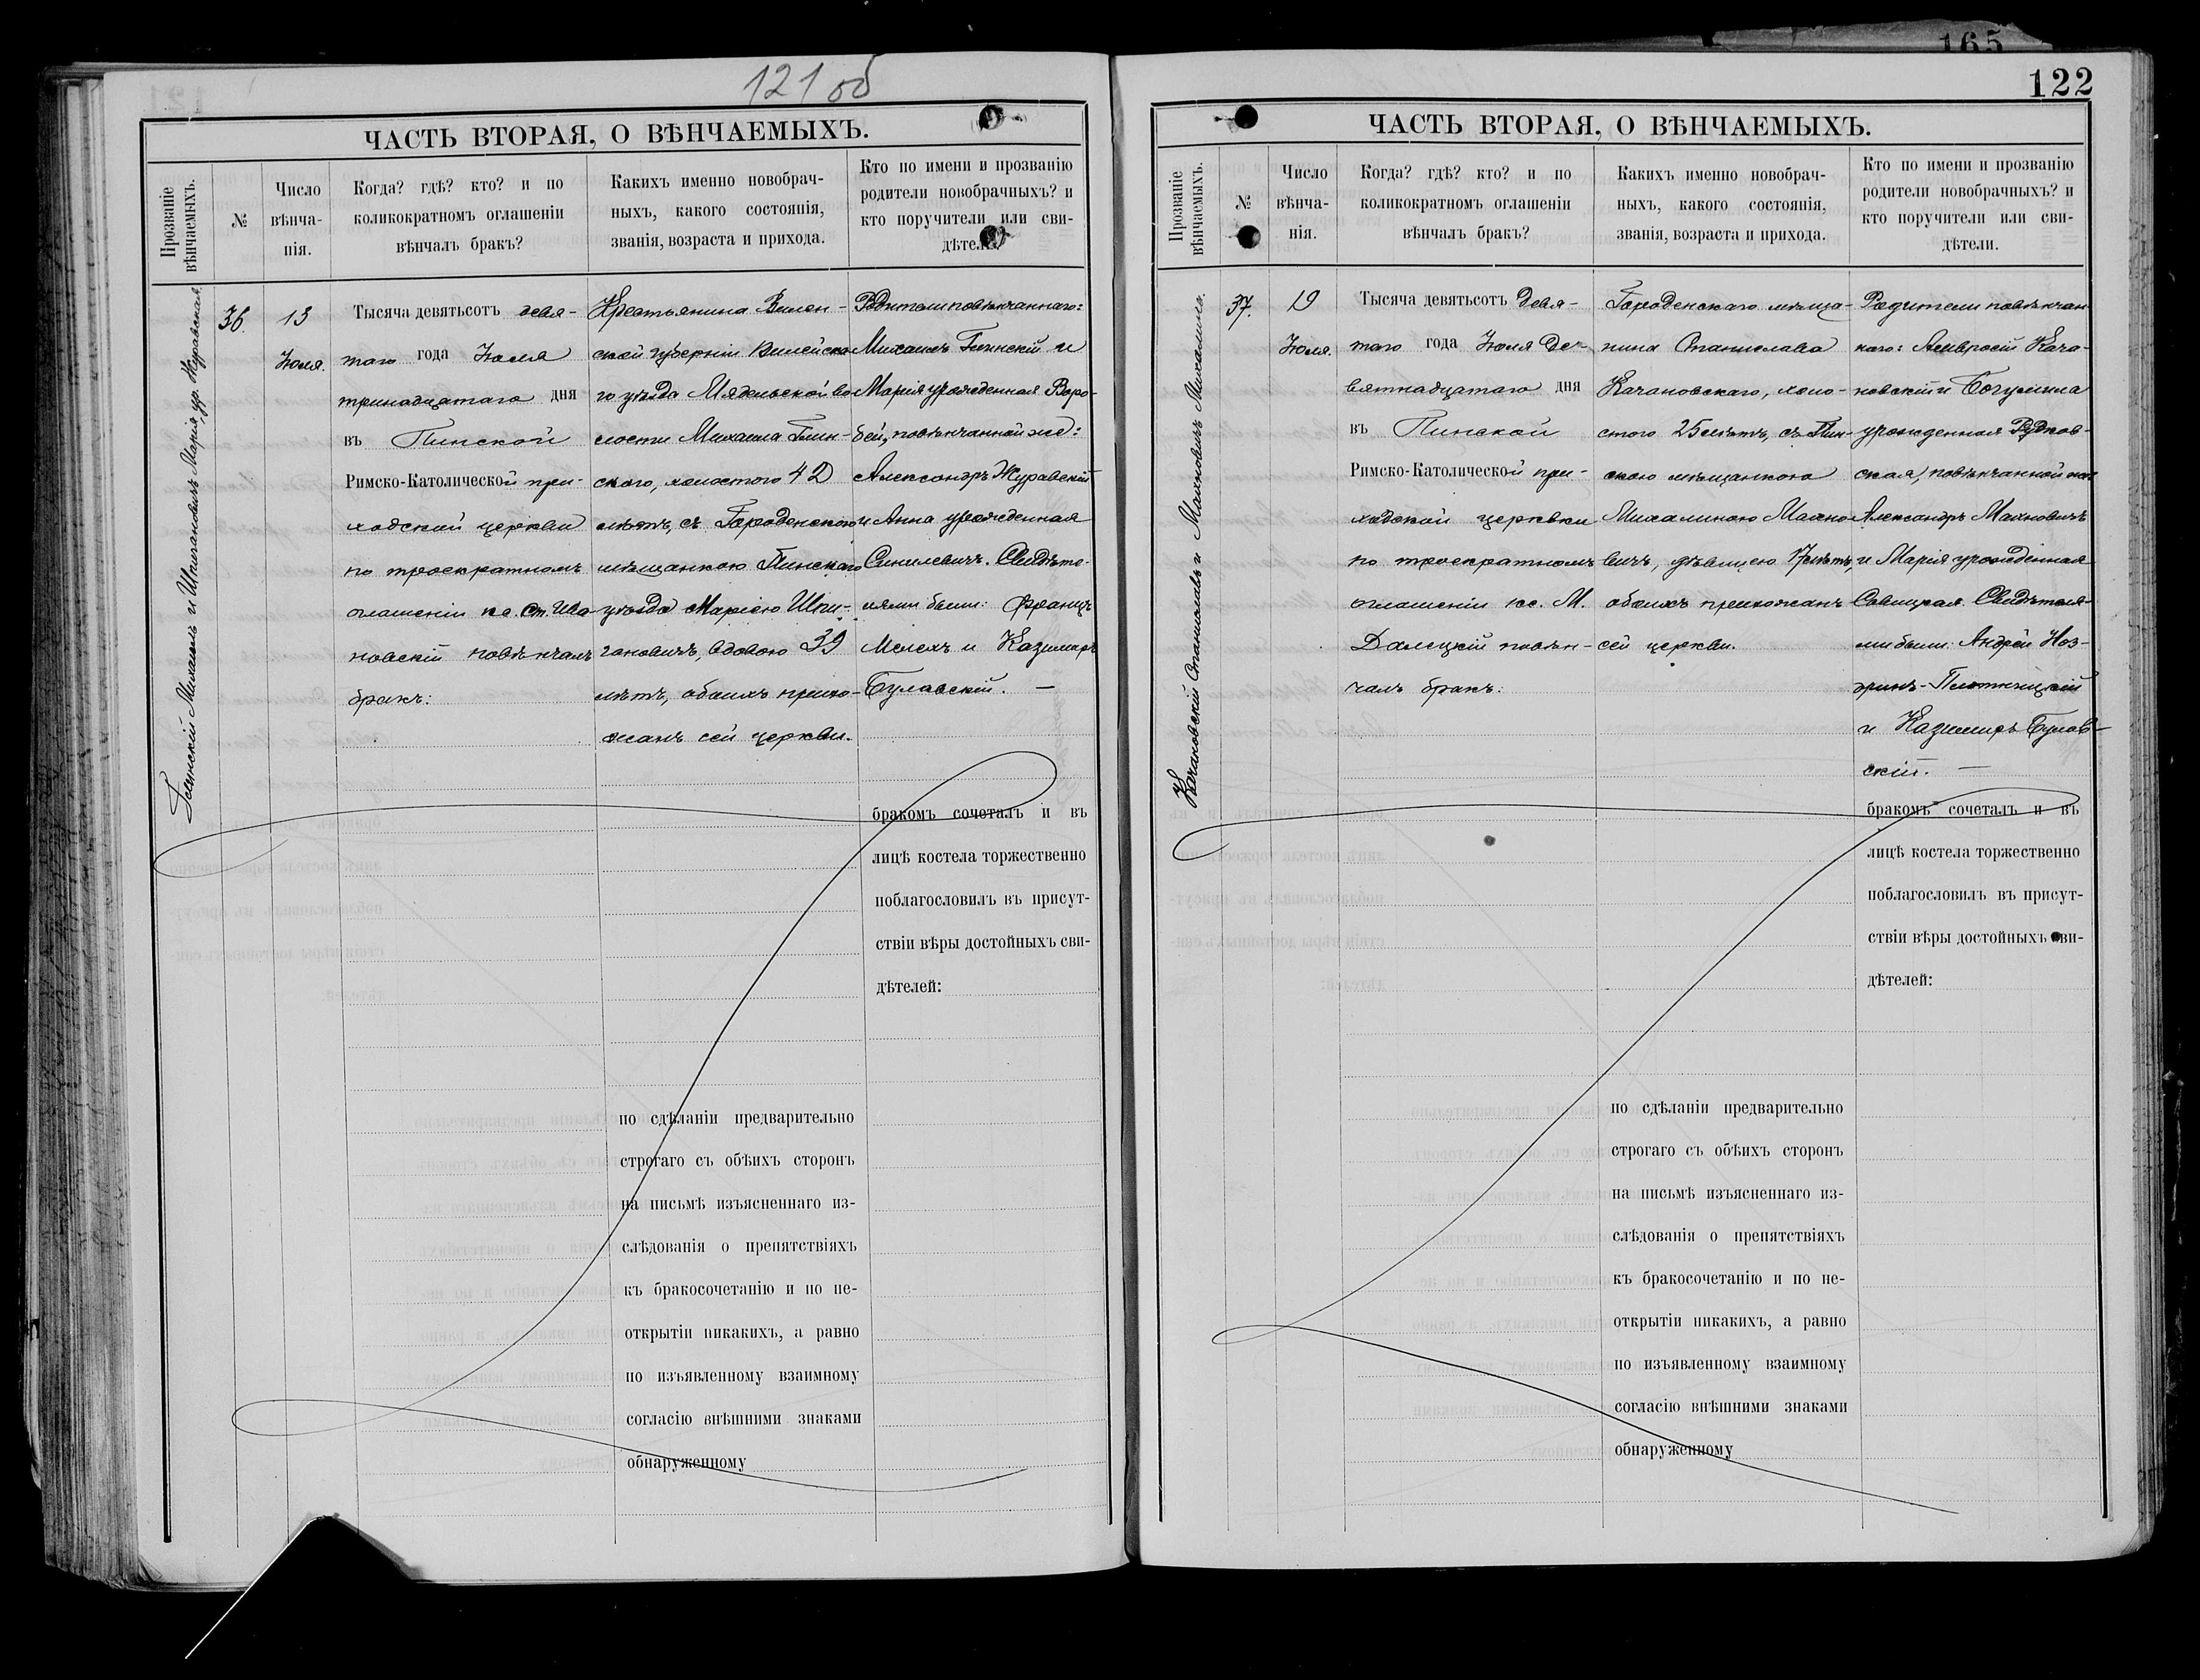 121 об
ЧАСТЬ ВТОРАЯ, О ВѢНЧАЕМЫХЪ.
Прозваніе
вѣнчаемыхъ.
№
Число
вѣнча-
нія.
Когда? гдѣ? кто? и по
коликократномъ оглашеніи
вѣнчалъ бракъ?
Какихъ именно новобрач-
ныхъ, какого состоянія,
званія, возраста и прихода.
Кто по имени и прозванію
родители новобрачныхъ? и
кто поручители или сви-
дѣтели.
Глинскій Михаилъ и Шпигановичъ Марія, ур. Журавская.
36.
13
Іюля.
Тысяча девятьсотъ девя-
таго года Іюля
тринадцатаго дня
въ Пинской
Римско-Католической при-
ходской церкви
по троекратномъ
оглашеніи кс. Ст. Ива
новскій повѣнчалъ
бракъ:
Крестьянина Вилен-
ской губерніи Вилейска
го уѣзда Мядельской во
лости Михаила Глин-
скаго, холостого 42
лѣтъ, съ Городенскою
мѣщанкою Пинскаго
уѣзда Маріею Шпи-
гановичъ, вдовою 39
лѣтъ, обоихъ прихо-
жанъ сей церкви.
Родители повѣнчаннаго:
Михаилъ Глинскій и
Марія урожденная Воро-
бей, повѣнчанной же:
Александръ Журавскій
и Анна урожденная
Синилевичъ. Свидѣте-
лями были: Францъ
Мелехъ и Казимиръ
Булавскій. —
бракомъ сочеталъ и въ
лицѣ костела торжественно
поблагословилъ въ присут-
ствіи вѣры достойныхъ сви-
дѣтелей:
по сдѣланіи предварительно
строгаго съ обѣихъ сторонъ
на письмѣ изъясненнаго из-
слѣдованія о препятствіяхъ
къ бракосочетанію и по не-
открытіи никакихъ, а равно
по изъявленному взаимному
согласію внѣшними знаками
обнаруженному
165
122
ЧАСТЬ ВТОРАЯ, О ВѢНЧАЕМЫХЪ.
Прозваніе
вѣнчаемыхъ.
№
Число
вѣнча-
нія.
Когда? гдѣ? кто? и по
коликократномъ оглашеніи
вѣнчалъ бракъ?
Какихъ именно новобрач-
ныхъ, какого состоянія,
званія, возраста и прихода.
Кто по имени и прозванію
родители новобрачныхъ? и
кто поручители или сви-
дѣтели.
Качановскій Станиславъ и Махновичъ Михалина.
37.
19
Іюля.
Тысяча девятьсотъ девя-
таго года Іюля де-
вятнадцатаго дня
въ Пинской
Римско-Католической при-
ходской церкви
по троекратномъ
оглашеніи кс. М.
Далецкій повѣн-
чалъ бракъ:
Городенскаго мѣща-
нина Станислава
Качановскаго, холо-
стого 25 лѣтъ, съ Пин-
скою мѣщанкою
Михалиною Махно
вичъ, дѣвицею 17 лѣтъ,
обоихъ прихожанъ
сей церкви.
Родители повѣнчан
наго: Амвросій Кача-
новскій и Богумила
урожденная Рудков-
ская, повѣнчанной же:
Александръ Махновичъ
и Марія урожденная
Савицкая. Свидѣтеля-
ми были: Андрей Ноз-
дринъ-Плотницкій
и Казимиръ Булав-
скій. —
бракомъ сочеталъ и въ
лицѣ костела торжественно
поблагословилъ въ присут-
ствіи вѣры достойныхъ сви-
дѣтелей:
по сдѣланіи предварительно
строгаго съ обѣихъ сторонъ
на письмѣ изъясненнаго из-
слѣдованія о препятствіяхъ
къ бракосочетанію и по не-
открытіи никакихъ, а равно
по изъявленному взаимному
согласію внѣшними знаками
обнаруженному